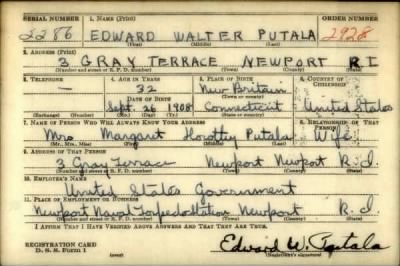 SERIAL NUMBER 1. NAME (Print) ORDER NUMBER
2286 EDWARD WALTER PUTALA 2928
(First) (Middle) (Last)
2. ADDRESS (Print)
3 GRAY TERRACE NEWPORT RI
(Number and street or R. F. D. number) (Town) (County) (State)
3. TELEPHONE 4. AGE IN YEARS 5. PLACE OF BIRTH 6. COUNTRY OF CITIZENSHIP
— 32 New Britain
DATE OF BIRTH (Town or county)
Sept. 26 1908 Connecticut United States
(Exchange) (No.) (Mo.) (Day) (Yr.) (State or country)
7. NAME OF PERSON WHO WILL ALWAYS KNOW YOUR ADDRESS 8. RELATIONSHIP OF THAT PERSON
Mrs Margaret Putala Wife
(Mr., Mrs., Miss) (First) (Middle) (Last)
9. ADDRESS OF THAT PERSON
3 Gray Terrace Newport Newport R.I.
(Number and street or R. F. D. number) (Town) (County) (State)
10. EMPLOYER'S NAME
United States Government
11. PLACE OF EMPLOYMENT OR BUSINESS
Newport Naval Torpedo Station Newport R.I.
(Number and street or R. F. D. number) (Town) (County) (State)
I AFFIRM THAT I HAVE VERIFIED ABOVE ANSWERS AND THAT THEY ARE TRUE.
REGISTRATION CARD
D. S. S. Form 1 (over) Edward W. Putala
(Registrant's signature)